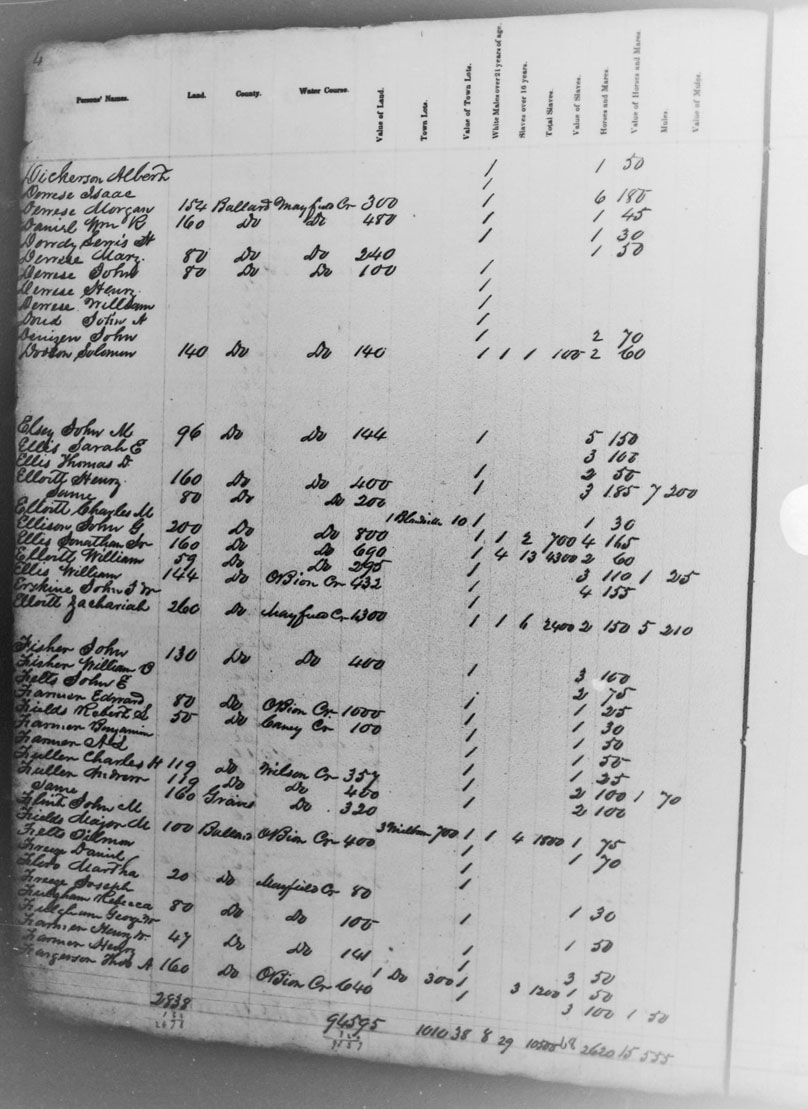 4
Persons' Names. Land. County. Water Course. Value of Land. Town Lots. Value of Town Lots. White Males over 21 years of age. Slaves over 16 years. Total Slaves. Value of Slaves. Horses and Mares. Value of Horses and Mares. Mules. Value of Mules.
Dickerson Albert 1 1 50
Derrese Isaac 1
Derrese Morgan 154 Ballard Mayfield Cr 300 1 6 180
Daniel Wm R 160 Do Do 480 1 1 45
Dowdy H 1 1 30
Derrese Mary 80 Do Do 240 1 50
Derrese John 80 Do Do 100 1
Derrese Henry 1
Derrese William 1
John A 1
Denizen John 1 2 70
Dotson Solomon 140 Do Do 140 1 1 1 100 2 60
Elsey John M 96 Do Do 144 1 5 150
Ellis Sarah E 3 100
Ellis Thomas D 1 2 50
Elloitt Henry 160 Do Do 400 1 3 185 7 200
Same 80 Do Do 200
Elloitt Charles M 1 Blandville 10 1 1 30
Ellison John G 200 Do Do 800 1 1 2 700 4 165
Ellis Jonathan Sr 160 Do Do 690 1 4 13 4300 2 60
Elloitt William 59 Do Do 295 1 3 110 1 25
Ellis William 144 Do OBion Cr 432 1 4 155
Erskine John 1
Elloitt Zachariah 260 Do Mayfield Cr 1300 1 1 6 2400 2 150 5 210
Fisher John 130 Do Do 400 1 3 100
Fisher William B 2 75
Felts John E 1 1 25
Farmer Edward 80 Do OBion Cr 1000 1 1 30
Fields Robert S 50 Do Caney Cr 100 1 1 50
Farmer Benjamin 1 1 50
Farmer 1 1 25
Fullen Charles H 119 Do Wilson Cr 357 1 2 100 1 70
Fullen Andrew 139 Do Do 400 1 2 100
Same 160 Graves Do 320
Flint John M
Fields Major M 100 Ballard OBion Cr 400 3 Milburn 700 1 1 4 1800 1 75
Felts Tilmon 1 1 70
Daniel 1
Martha 20 Do Mayfield Cr 80 1
Joseph
Fulgham Rebecca 80 Do Do 100 1 1 30
George W
Farmer Henry Sr 47 Do Do 141 1 1 50
Farmer Henry 1 Do 300 1 3 50
Fargerson Thos A 160 Do OBion Cr 640 1 3 1200 1 50
3 100 1 50
2838 9595 1010 38 8 29 10500 68 2620 15 555